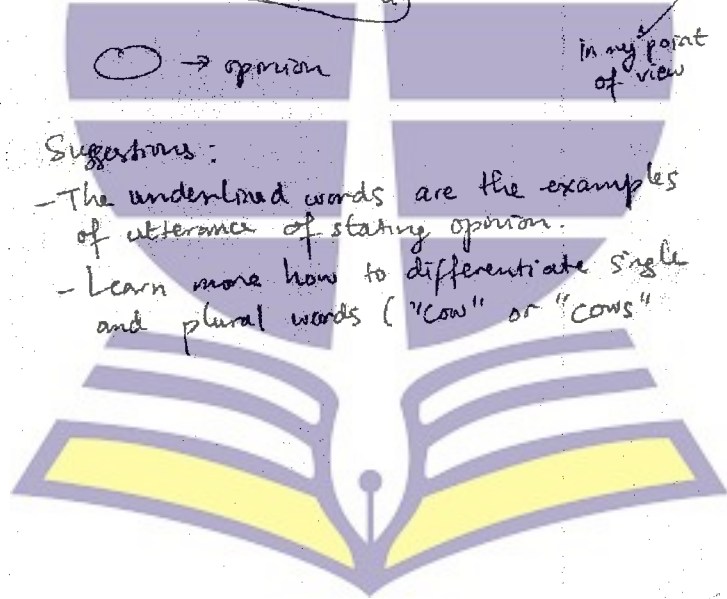 → opinion
in my point
of view
Suggestions:
- The underlined words are the examples
of utterance of stating opinion.
- Learn more how to differentiate single
and plural words ("cow" or "cows"